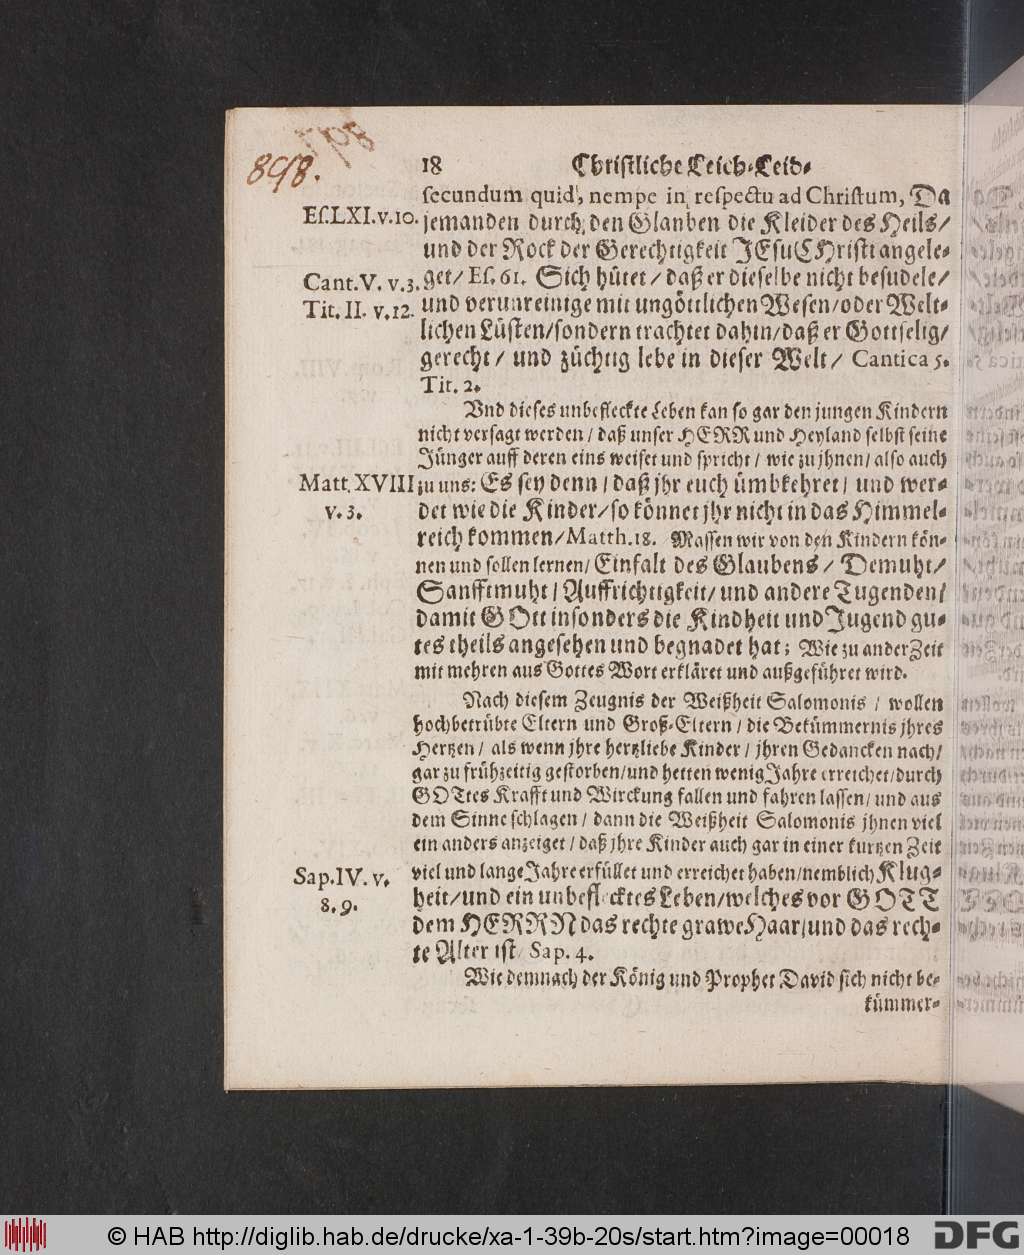 898.
18 Christliche Leich-Leid-
secundum quid, nempe in respectu ad Christum, Da
Es. LXI. v. 10.
jemanden durch den Glauben die Kleider des Heils/
und der Rock der Gerechtigkeit JEsu CHristi angele-
Cant. V. v. 3.
get/ Es. 61. Sich hütet/ daß er dieselbe nicht besudele/
Tit. II. v. 12.
und verunreinige mit ungöttlichen Wesen/ oder Welt-
lichen Lüsten/ sondern trachtet dahin/ daß er Gottselig/
gerecht/ und züchtig lebe in dieser Welt/ Cantica 5.
Tit. 2.
Und dieses unbefleckte Leben kan so gar den jungen Kindern
nicht versagt werden/ daß unser HERR und Heyland selbst seine
Jünger auff deren eins weiset und spricht/ wie zu jhnen/ also auch
Matt. XVIII
v. 3.
zu uns: Es sey denn/ daß jhr euch ümbkehret/ und wer-
det wie die Kinder/ so könnet jhr nicht in das Himmel-
reich kommen/ Matth. 18. Massen wir von den Kindern kön-
nen und sollen lernen/ Einfalt des Glaubens/ Demuht/
Sanfftmuht/ Auffrichtigkeit/ und andere Tugenden/
damit GOtt insonders die Kindheit und Jugend gu-
tes theils angesehen und begnadet hat; Wie zu ander Zeit
mit mehren aus Gottes Wort erkläret und außgeführet wird.
Nach diesem Zeugnis der Weißheit Salomonis/ wollen
hochbetrübte Eltern und Groß-Eltern/ die Bekümmernis jhres
Hertzen/ als wenn jhre hertzliebe Kinder/ jhren Gedancken nach/
gar zu frühzeitig gestorben/ und hetten wenig Jahre erreichet/ durch
GOTtes Krafft und Wirckung fallen und fahren lassen/ und aus
dem Sinne schlagen/ dann die Weißheit Salomonis jhnen viel
ein anders anzeiget/ daß jhre Kinder auch gar in einer kurtzen Zeit
Sap. IV. v.
8. 9.
viel und lange Jahre erfüllet und erreichet haben/ nemblich Klug-
heit/ und ein unbeflecktes Leben/ welches vor GOTT
dem HERRN das rechte grawe Haar/ und das rech-
te Alter ist/ Sap. 4.
Wie demnach der König und Prophet David sich nicht be-
kümmer-
© HAB http://diglib.hab.de/drucke/xa-1-39b-20s/start.htm?image=00018
DFG